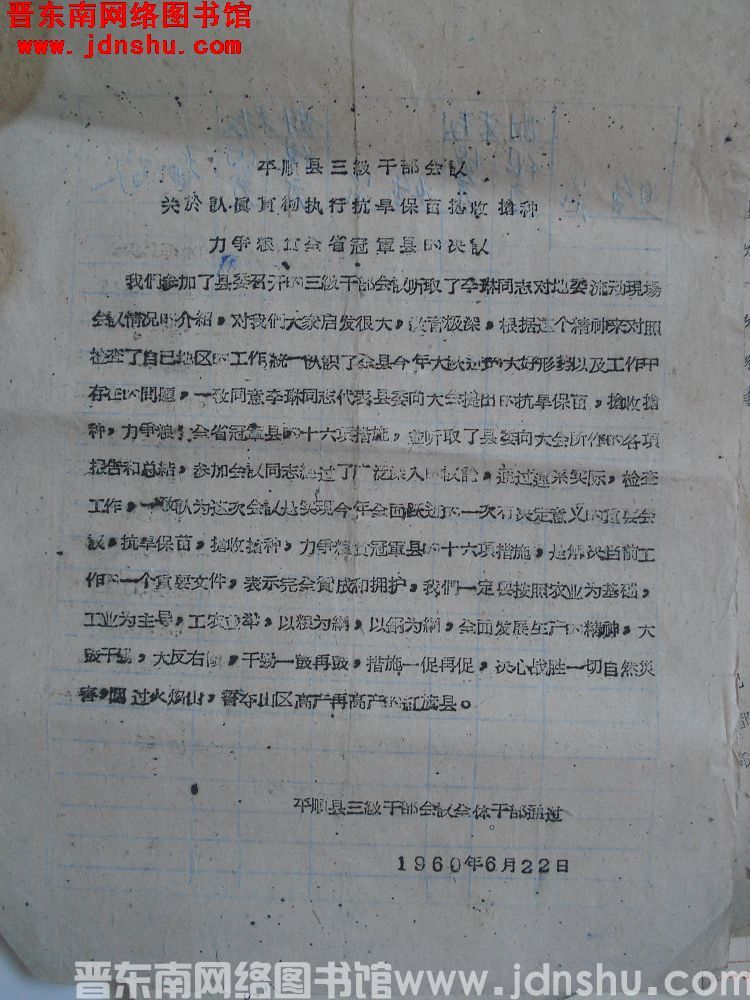 晋东南网络图书馆
www.jdnshu.com
平顺县三級干部会议
关於认真貫彻执行抗旱保苗搶收搶种
力爭粮食全省冠軍县的决议
我們参加了县委召开的三級干部会议听取了李琳同志对地委流动現場
会议情况的介紹，对我們大家启发很大，教育极深，根据这个精神来对照
检查了自己地区的工作，統一认識了全县今年大跃进的大好形势以及工作中
存在的問題，一致同意李琳同志代表县委向大会提出的抗旱保苗，搶收搶
种，力爭粮食全省冠軍县的十六項措施，並听取了县委向大会所作的各項
报告和总結，参加会议同志經过了广泛深入的討論，通过連系实际，检查
工作，一致认为这次会议是实現今年全面跃进的一次有决定意义的重要会
议，抗旱保苗，搶收搶种，力爭粮食冠軍县的十六項措施，是解决当前工
作的一个重要文件，表示完全贊成和拥护，我們一定要按照农业为基础，
工业为主导，工农並举，以粮为綱，以鋼为綱，全面发展生产的精神，大
鼓干劲，大反右傾，干劲一鼓再鼓，措施一促再促，决心战胜一切自然災
害，闖过火焰山，奪山区高产再高产的紅旗县。
平順县三級干部会议全体干部通过
1960年6月22日
晋东南网络图书馆www.jdnshu.com